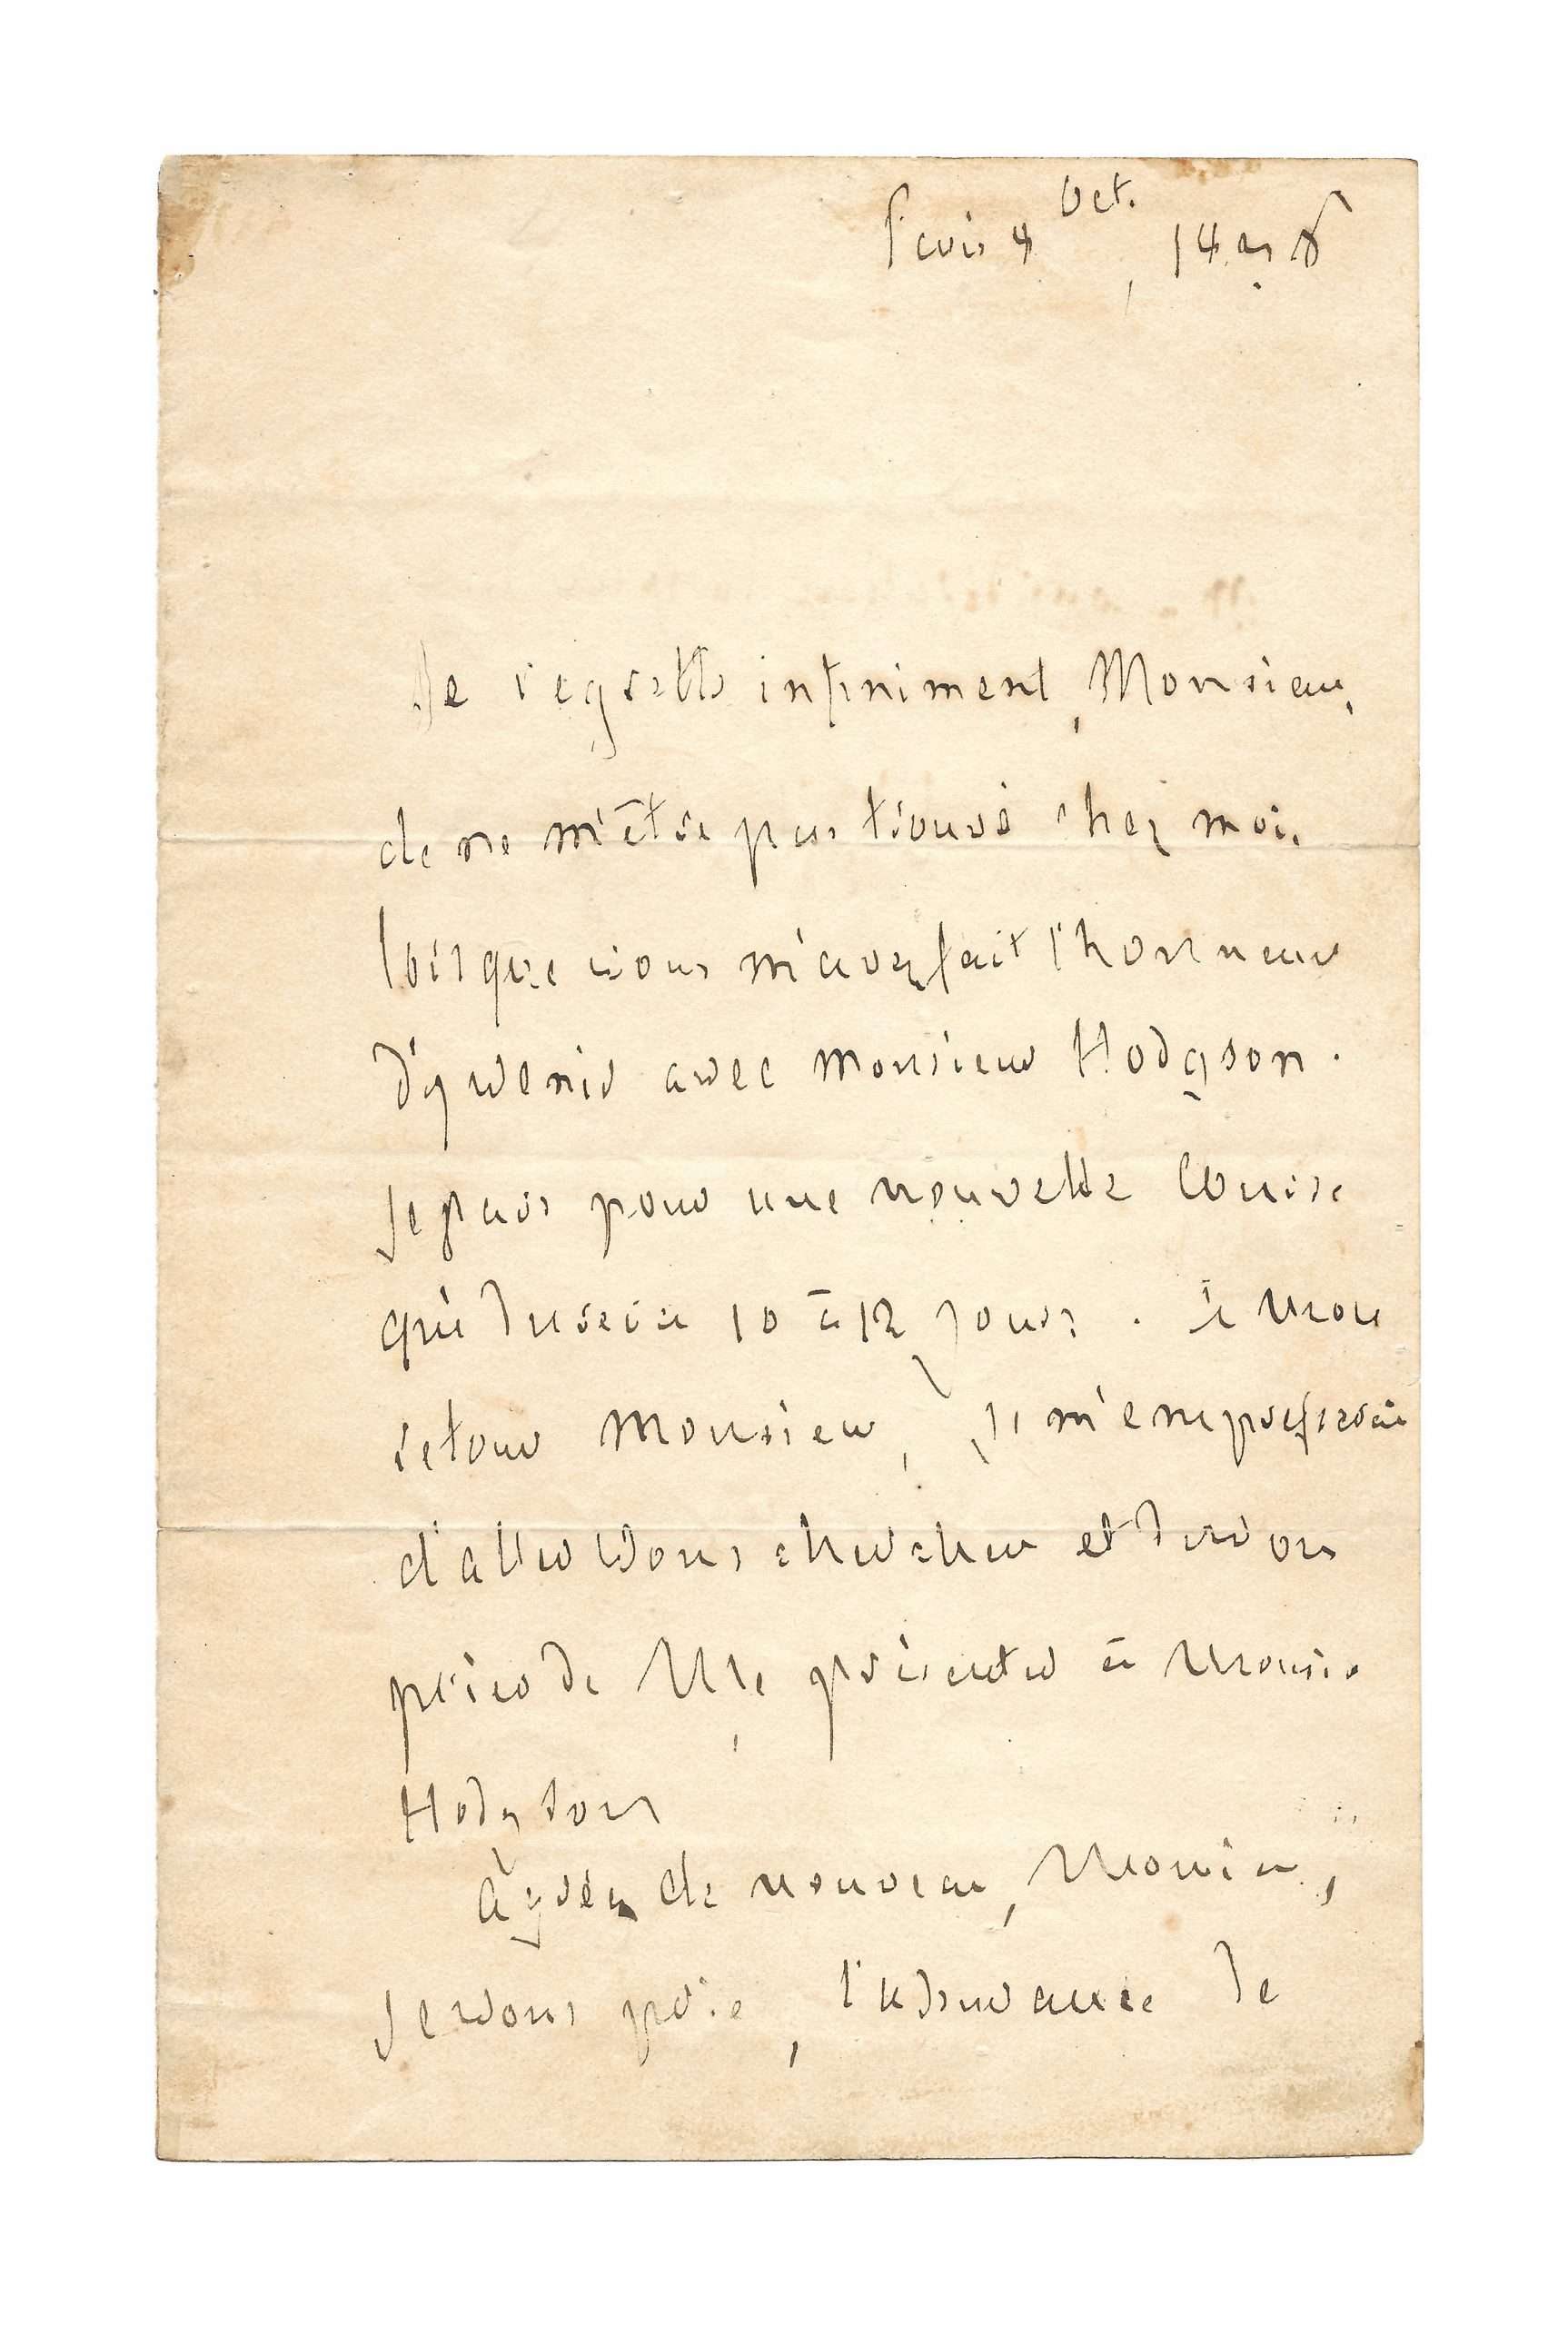 Paris 4 Oct.
Je regrette infiniment, Monsieur,
de ne m'être pas trouvé chez moi
lorsque vous m'avez fait l'honneur
d'y venir avec Monsieur Hodgson.
Je pars pour une nouvelle Course
qui durera 10 à 12 jours. à mon
retour Monsieur, je m'empresserai
d'aller vous chercher et de vous
prier de me présenter à Monsieur
Hodgson
agréez de nouveau, Monsieur,
Je vous prie, l'assurance de